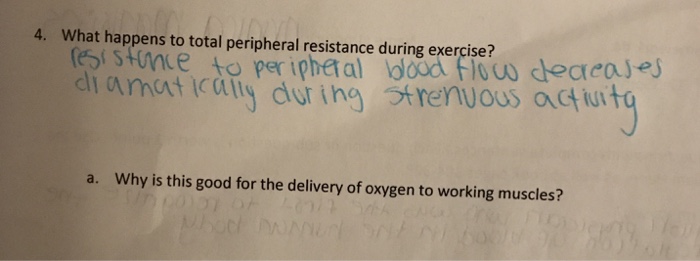 4. What happens to total peripheral resistance during exercise?
resistance to peripheral blood flow decreases
dramatically during strenuous activity
a. Why is this good for the delivery of oxygen to working muscles?